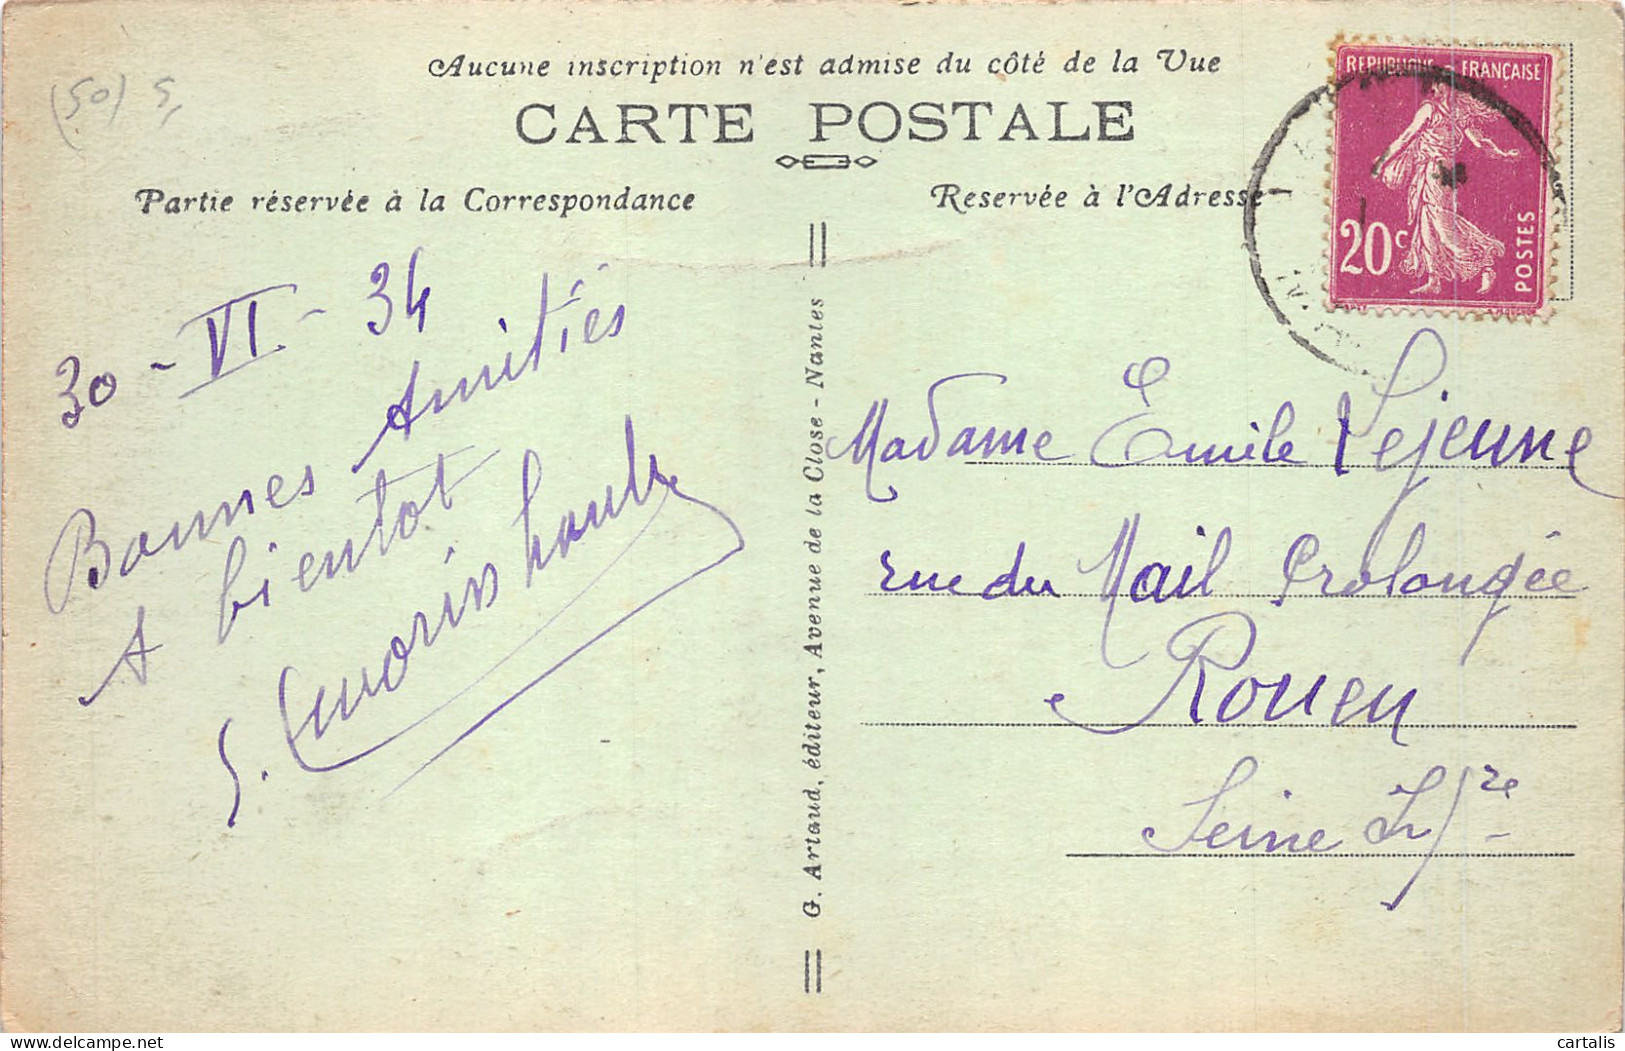 (50) 5,
Aucune inscription n'est admise du côté de la Vue
CARTE POSTALE
Partie réservée à la Correspondance
Reservée à l'Adresse
REPUBLIQUE FRANÇAISE
20c
POSTES
30 - VI - 34
Bonnes Amitiés
A bientot
G. Artaud, éditeur, Avenue de la Close - Nantes
Madame Emile Lejeune
rue du Mail Prolongée
Rouen
Seine Infre
delcampe.net
cartalis